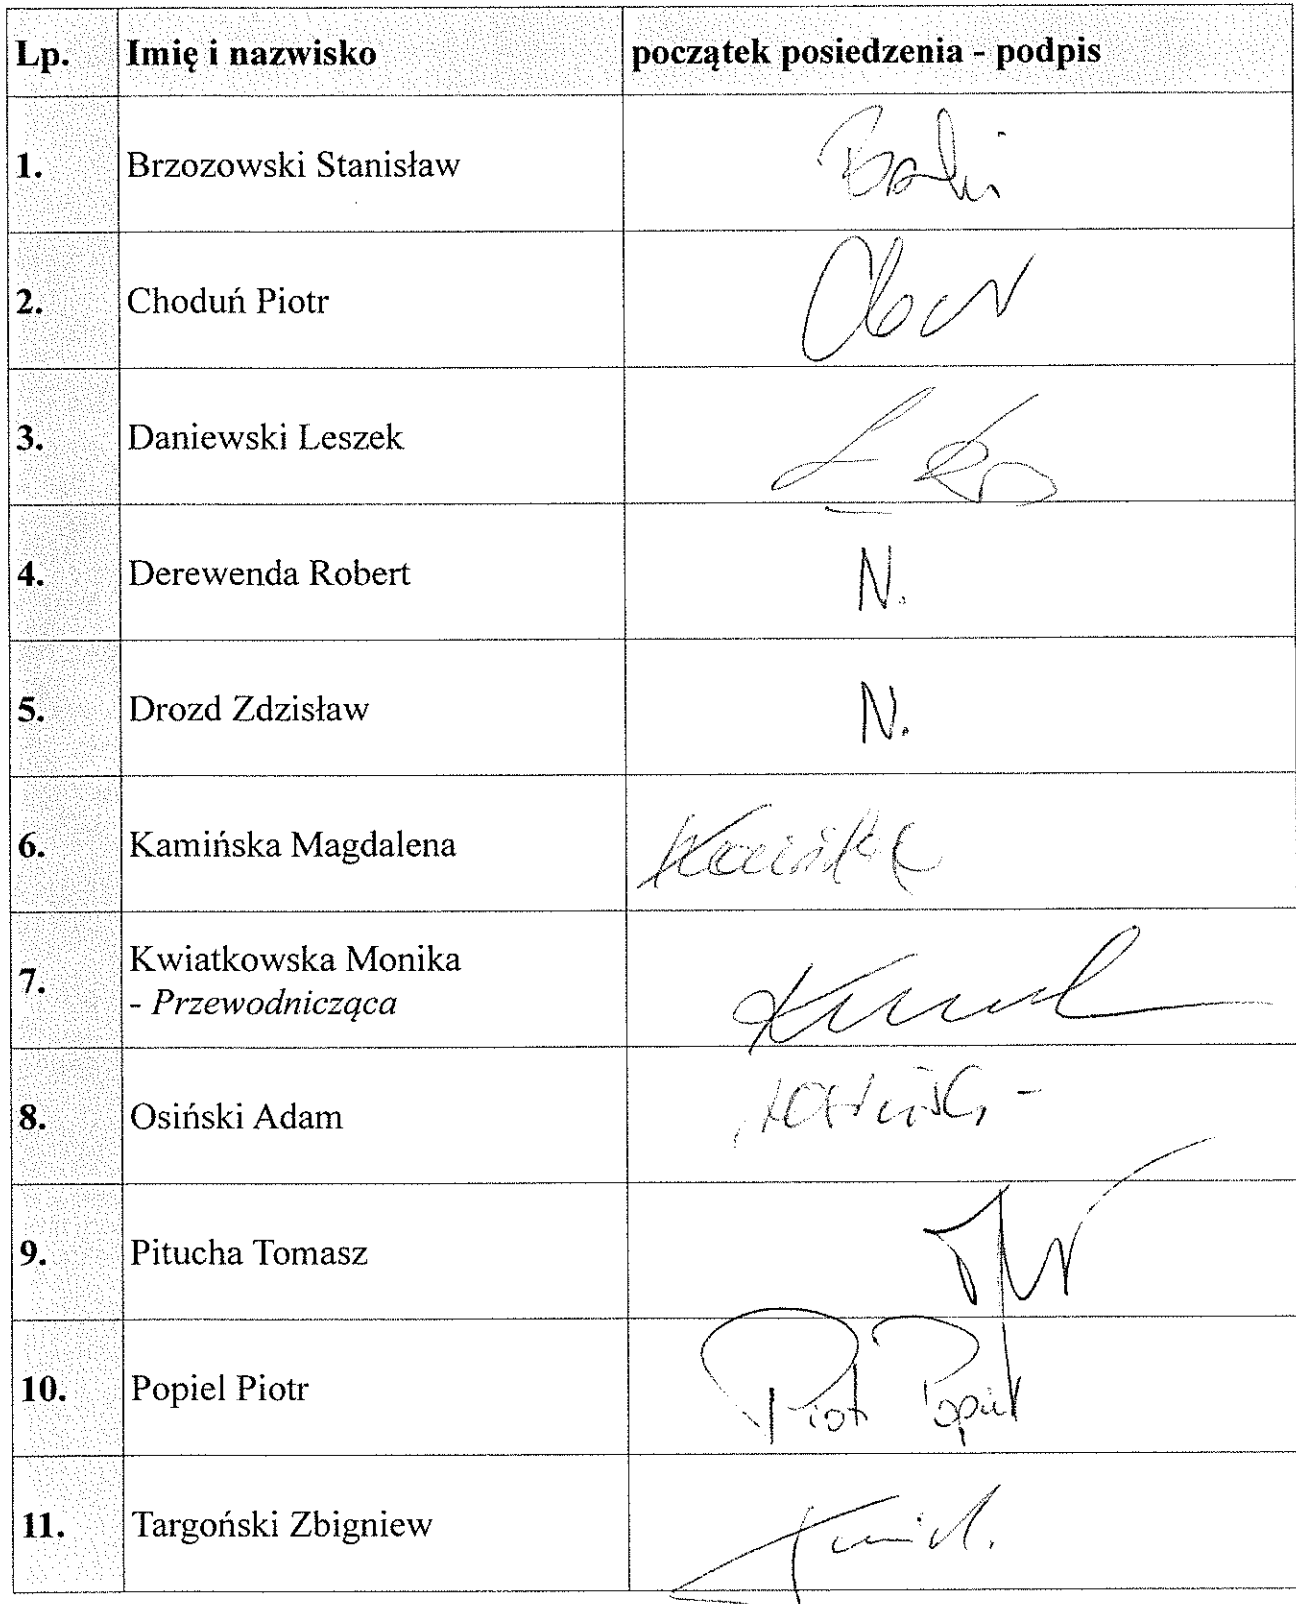 Lp. Imię i nazwisko początek posiedzenia - podpis
1. Brzozowski Stanisław
2. Choduń Piotr
3. Daniewski Leszek
4. Derewenda Robert N.
5. Drozd Zdzisław N.
6. Kamińska Magdalena
7. Kwiatkowska Monika
- Przewodnicząca
8. Osiński Adam
9. Pitucha Tomasz
10. Popiel Piotr Piotr Popiel
11. Targoński Zbigniew